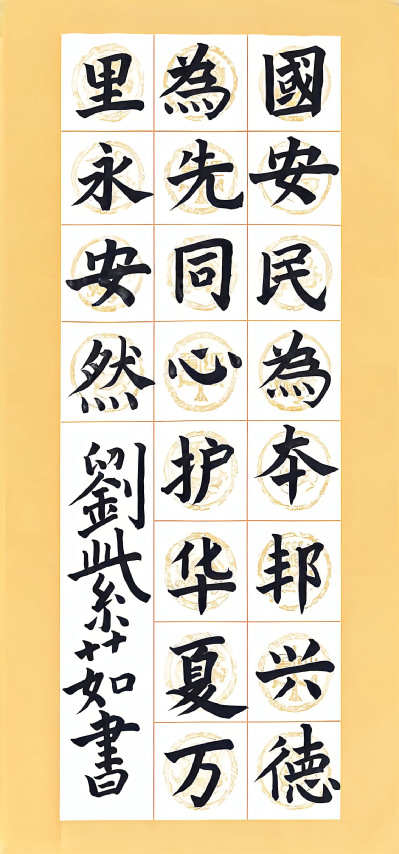 國安民為本邦兴德
為先同心护华夏万
里永安然
劉紫茹書